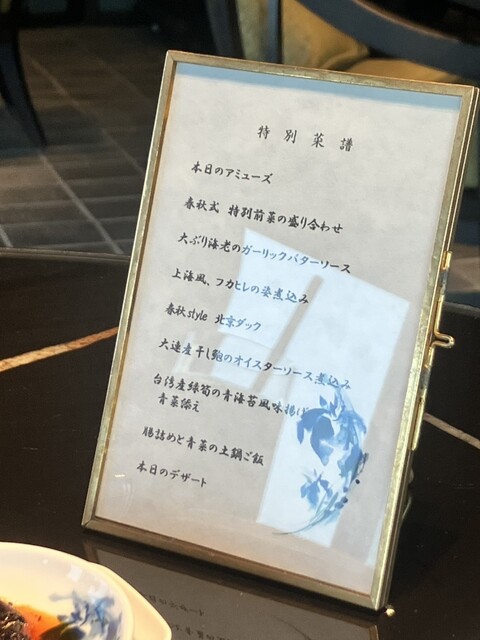 特別菜譜
本日のアミューズ
春秋式 特別前菜の盛り合わせ
大ぶり海老のガーリックバターソース
上海風、フカヒレの姿煮込み
春秋style 北京ダック
大連産干し鮑のオイスターソース煮込み
台湾産緑筍の青海苔風味揚げ
青菜添え
腸詰めと青菜の土鍋ご飯
本日のデザート